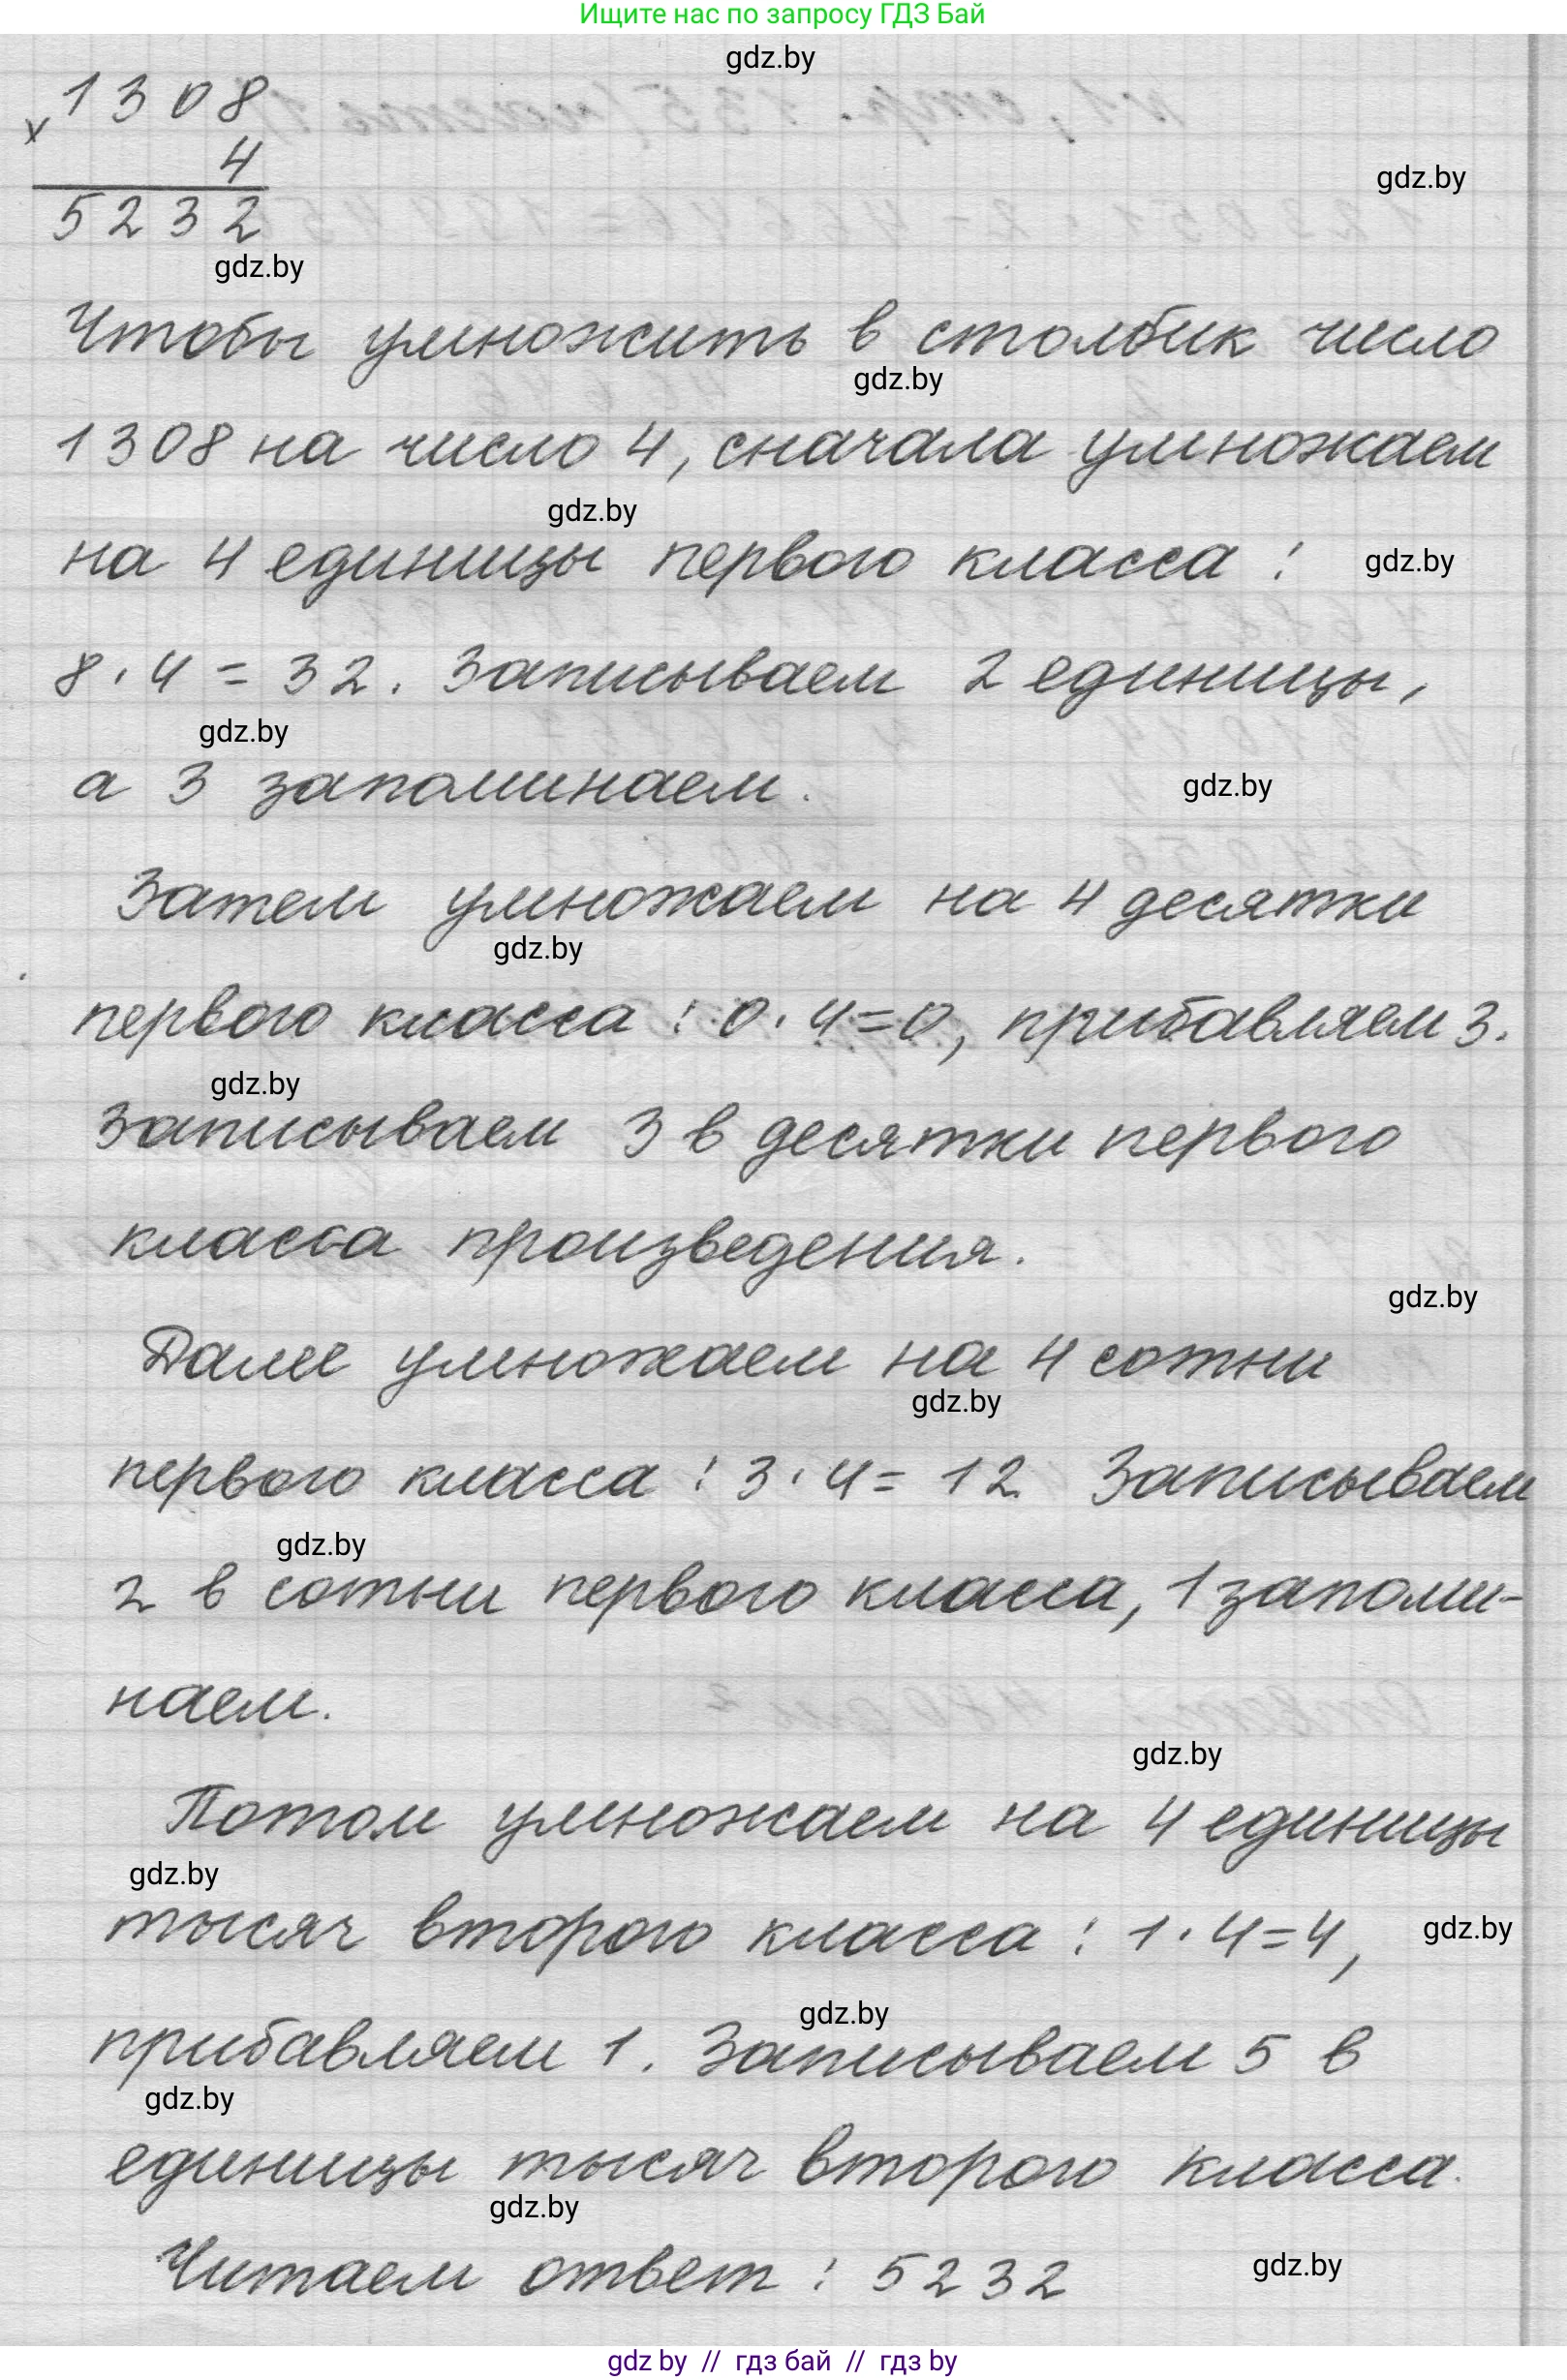 Ищите нас по запросу ГДЗ Бай
gdz.by
1308
×
4
gdz.by
5232
gdz.by
Чтобы умножить в столбик число
gdz.by
1308 на число 4, сначала умножаем
gdz.by
на 4 единицы первого класса :
gdz.by
8 · 4 = 32. Записываем 2 единицы,
gdz.by
а 3 запоминаем.
gdz.by
Затем умножаем на 4 десятки
gdz.by
первого класса : 0 · 4 = 0, прибавляем 3.
gdz.by
Записываем 3 в десятки первого
класса произведения.
gdz.by
Далее умножаем на 4 сотни
gdz.by
первого класса : 3 · 4 = 12 Записываем
gdz.by
2 в сотни первого класса, 1 запоми-
наем.
gdz.by
Потом умножаем на 4 единицы
gdz.by
тысяч второго класса : 1 · 4 = 4,
gdz.by
gdz.by
прибавляем 1. Записываем 5 в
gdz.by
единицы тысяч второго класса.
gdz.by
Читаем ответ : 5232
gdz.by
gdz by // гдз бай // гдз by